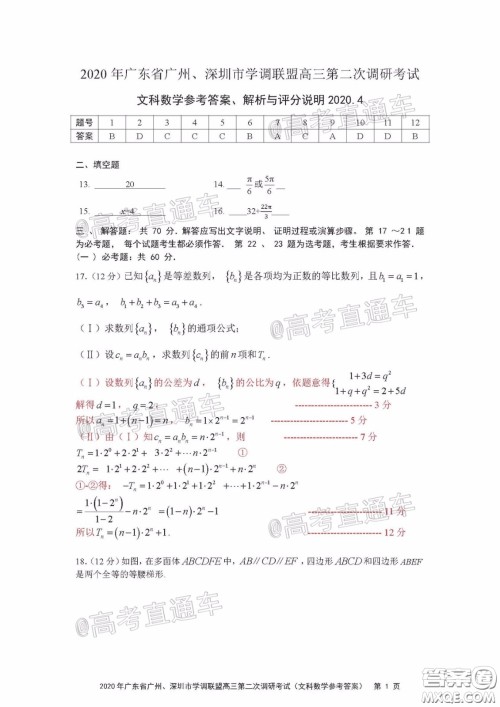 2020 年广东省广州、深圳市学调联盟高三第二次调研考试
文科数学参考答案、解析与评分说明 2020.4
题号 1 2 3 4 5 6 7 8 9 10 11 12
答案 B D C C B A B C A D D B
二、填空题
13. 20 14. π/6 或 5π/6
15. x-4 16. 32+22π/3
三 、解答题: 共 70 分.解答应写出文字说明、证明过程或演算步骤。第 17 ~21 题
为必考题, 每个试题考生都必须作答. 第 22 、 23 题为选考题,考生根据要求作答.
(一 ) 必考题: 共 60 分.
17. (12 分) 已知{aₙ}是等差数列, {bₙ}是各项均为正数的等比数列,且b₁=a₁=1,
b₃=a₄, b₁+b₂+b₃=a₃+a₄.
(Ⅰ) 求数列{aₙ}, {bₙ}的通项公式;
(Ⅱ) 设cₙ=aₙbₙ, 求数列{cₙ}的前n项和Tₙ.
(Ⅰ) 设数列{aₙ}的公差为d, {bₙ}的公比为q, 依题意得{1+3d=q² 1+q+q²=2+5d
解得d=1, q=2; 3 分
所以aₙ=1+(n-1)=n, bₙ=1×2ⁿ⁻¹=2ⁿ⁻¹ 5 分
(II)由 (Ⅰ) 知cₙ=aₙbₙ=n·2ⁿ⁻¹, 则 7 分
Tₙ=1·2⁰+2·2¹+ 3·2²+…+n·2ⁿ⁻¹ ①
2Tₙ= 1·2¹+2·2²+…+(n-1)·2ⁿ⁻¹+n·2ⁿ ②
①-②得: -Tₙ=1·2⁰+1·2¹+1·2²+…+1·2ⁿ⁻¹-n·2ⁿ
=1·(1-2ⁿ)/(1-2)-n·2ⁿ =(1-n)·2ⁿ-1 11 分
所以Tₙ=(n-1)·2ⁿ+1. 12 分
18. (12 分) 如图, 在多面体ABCDFE中, AB//CD//EF, 四边形ABCD和四边形ABEF
是两个全等的等腰梯形.
2020 年广东省广州、深圳市学调联盟高三第二次调研考试(文科数学参考答案) 第 1 页
@高考直通车
@高考直通车
@高考直通车
@高考直通车
@高考直通车